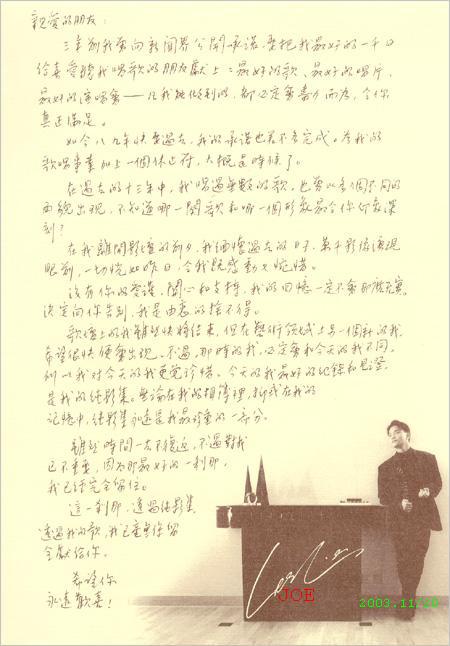 親愛的朋友：
三年前我曾向新聞界公開承諾，要把我最好的一千日
給喜愛聽我唱歌的朋友獻上：最好的歌、最好的唱片、
最好的演唱會——凡我能做到的，都必定會盡力而為，令你
真正滿足。
如今八九年快要過去，我的承諾也差不多完成。為我的
歌唱事業加上一個休止符，大概是時候了。
在過去的十三年中，我唱過無數的歌，也曾以多個不同的
面貌出現，不知道哪一闋歌和哪一個形象最令你印象深
刻？
在我離開影壇的前夕，我緬懷過去的日子，萬千影像湧現
眼前，一切恍如昨日，令我既感動又惋惜。
沒有你的愛護、關心和支持，我的回憶一定不會那麼充實。
決定向你告別，我是由衷的捨不得。
歌壇上的我雖然快將結束，但在藝術領域上另一個新的我，
希望很快便會出現。不過，那時的我，必定會和今天的我不同，
所以我對今天的我更覺珍惜。今天的我最好的紀錄和見證
是我的結影集。無論在我的相簿裡，抑或在我的
記憶中，結影集永遠是我最珍重的一部分。
雖然時間一去不復返，不過對我
已不重要，因為那最好的一剎那，
我已經完全留住。
這一剎那，透過結影集，
透過我的歌，我已盡量保留
全獻給你。
希望你
永遠歡喜！
JOE